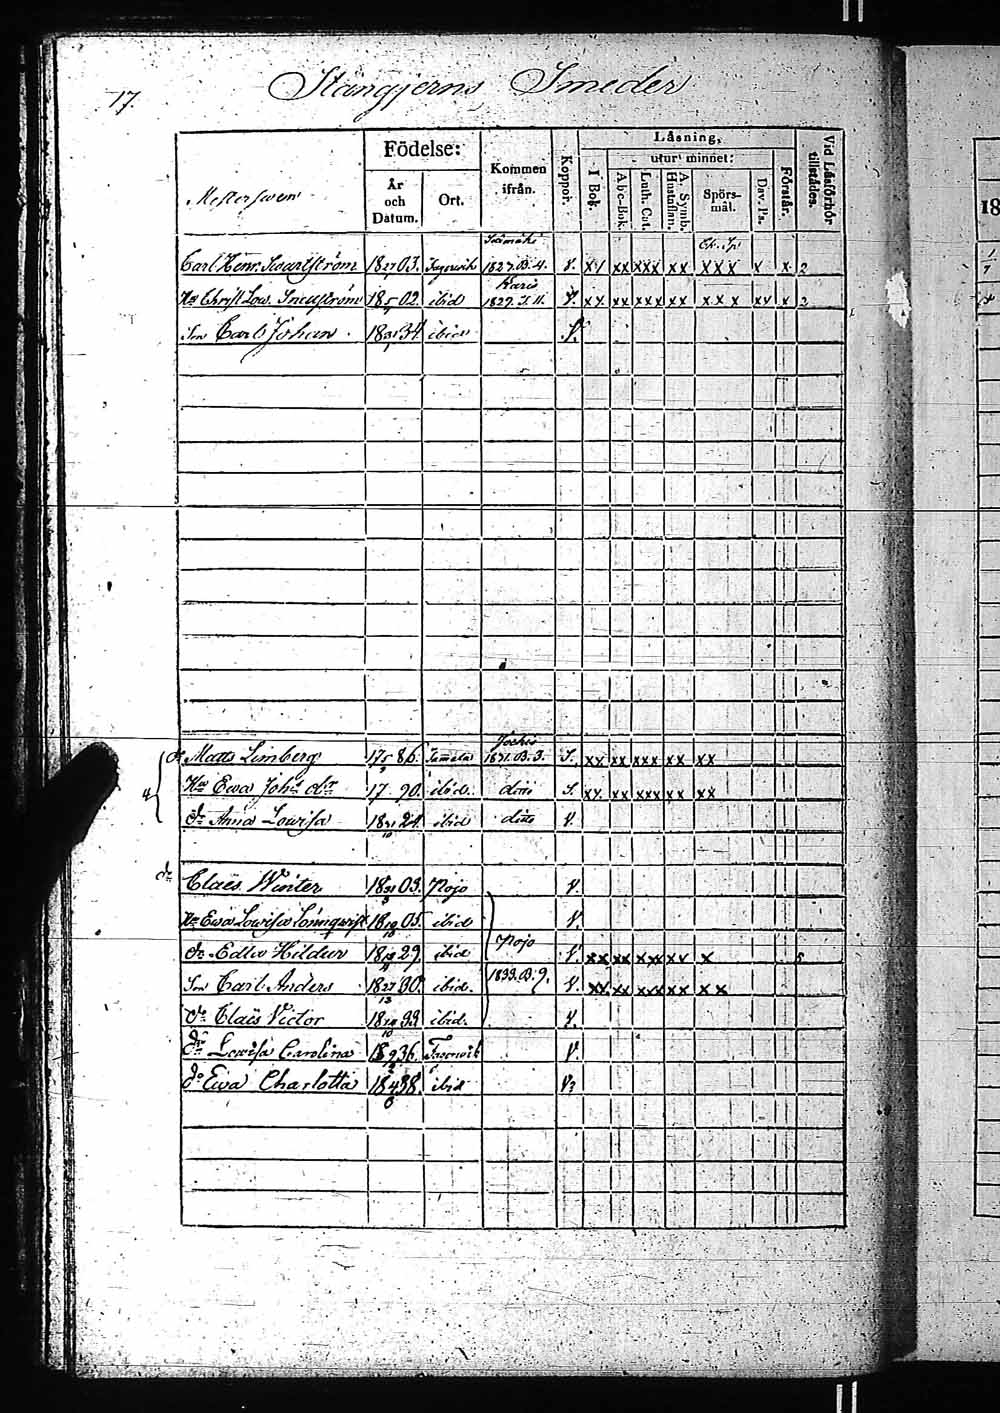 17.
Stångjerns Smeder
Mestersven
Födelse:
År och Datum.
Ort.
Kommen ifrån.
Koppor.
Läsning,
I Bok.
utur minnet:
Abc-Bok.
Luth. Cat.
A. Symb. Hustaflan.
Spörs-mål.
Dav. Ps.
Förstår.
Vid Läsförhör tillstädes.
18
Carl Henr. 1803. 1827. B. 4. V. x/ xx xxx xx xxx x x 2
Hu Christ. Low. 1802. ibid Karis 1829. 11. V. xx xx xxx xx xxx xv x 2
Son Carl Johan 1834. ibid V.
Matts Limberg 1786. Jockis 1831. B. 3. S. xx xx xxx xx xx
4
Hu Ewa Johs dr 1790. ibid. ditto S. xx xx xxx xx xx
dr Anna Lowisa 1824. ibid ditto V.
Claës Winter 1803. Pojo V.
Hu Ewa Lowisa Lönnqwist 1805. ibid V.
Pojo
1833. B. 9.
dr Edla Hildur 1829. ibid V. xx xx xxx xv x
Son Carl Anders 1830. ibid. V. xx xx xxx xx xx
do Claës Victor 1833 ibid. V.
dr Lowisa Carolina 1836. Fagervik V.
do Ewa Charlotta 1838. ibid V.